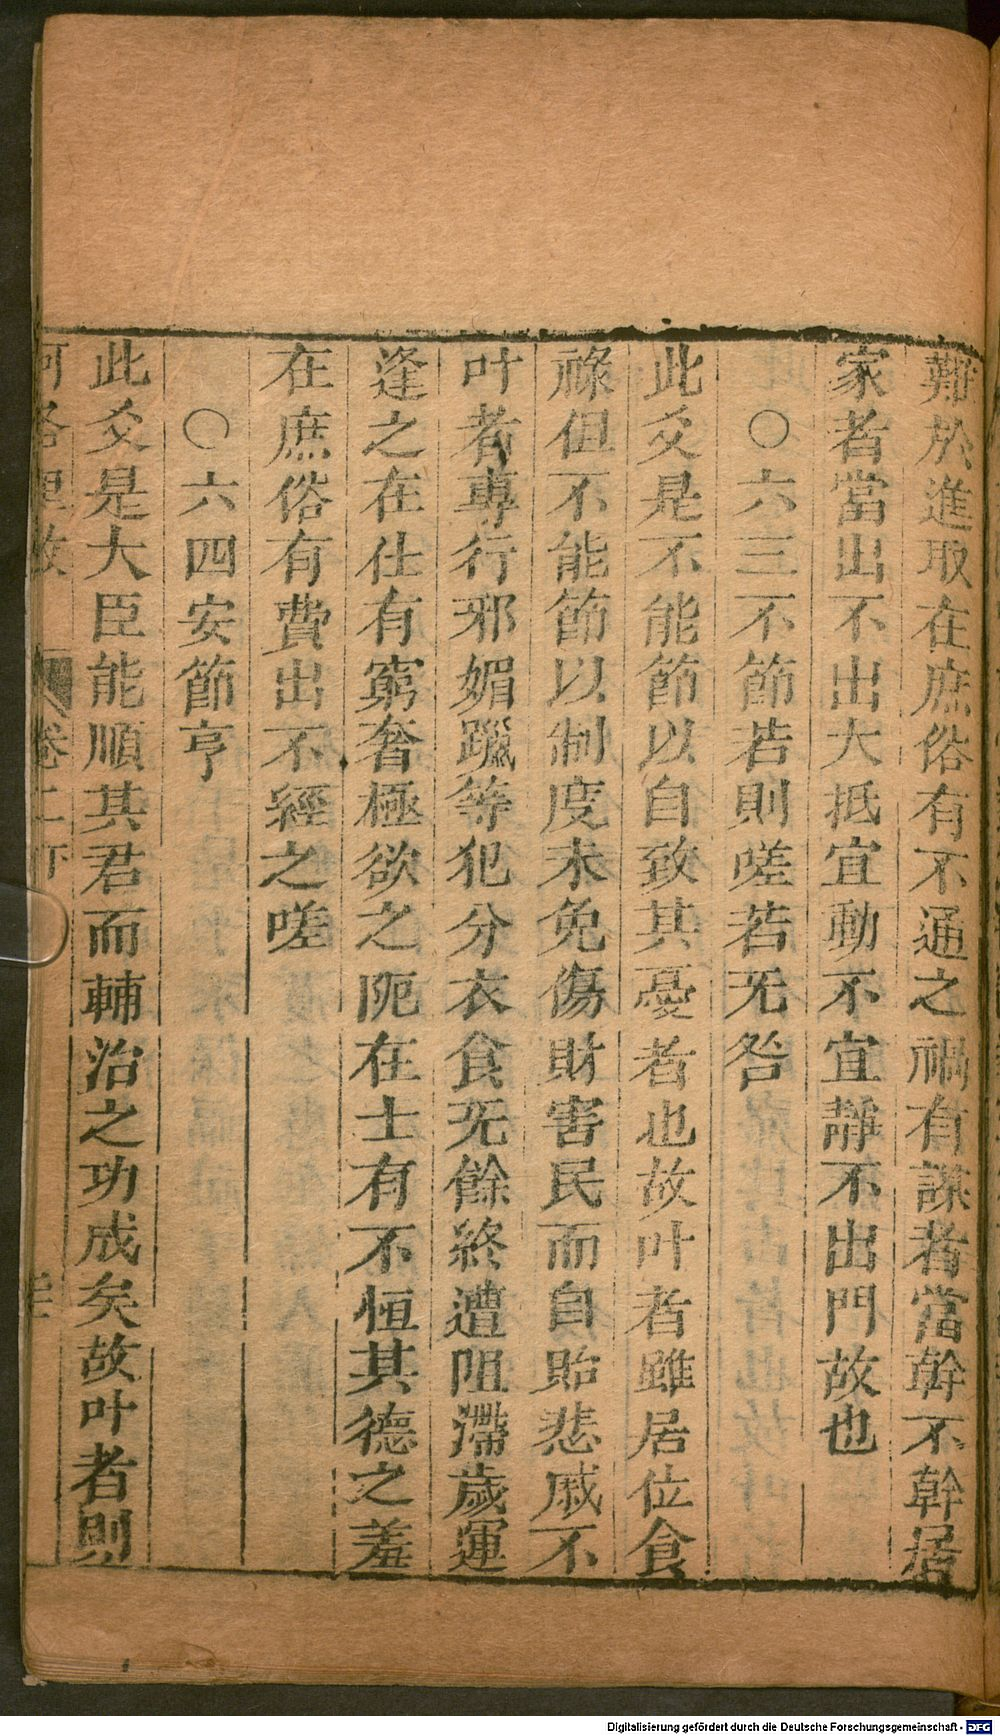 難於進取在庶俗有不通之禍有謀者當幹不幹居
家者當出不出大抵宜動不宜靜不出門故也
○六三不節若則嗟若无咎
此爻是不能節以自致其憂者也故叶者雖居位食
祿但不能節以制度未免傷財害民而自貽悲戚不
叶者專行邪媚躐等犯分衣食无餘終遭阻滯歲運
逢之在仕有窮奢極欲之阨在士有不恒其德之羞
在庶俗有費出不經之嗟
○六四安節亨
此爻是大臣能順其君而輔治之功成矣故叶者則
卷二下
Digitalisierung gefördert durch die Deutsche Forschungsgemeinschaft - DFG